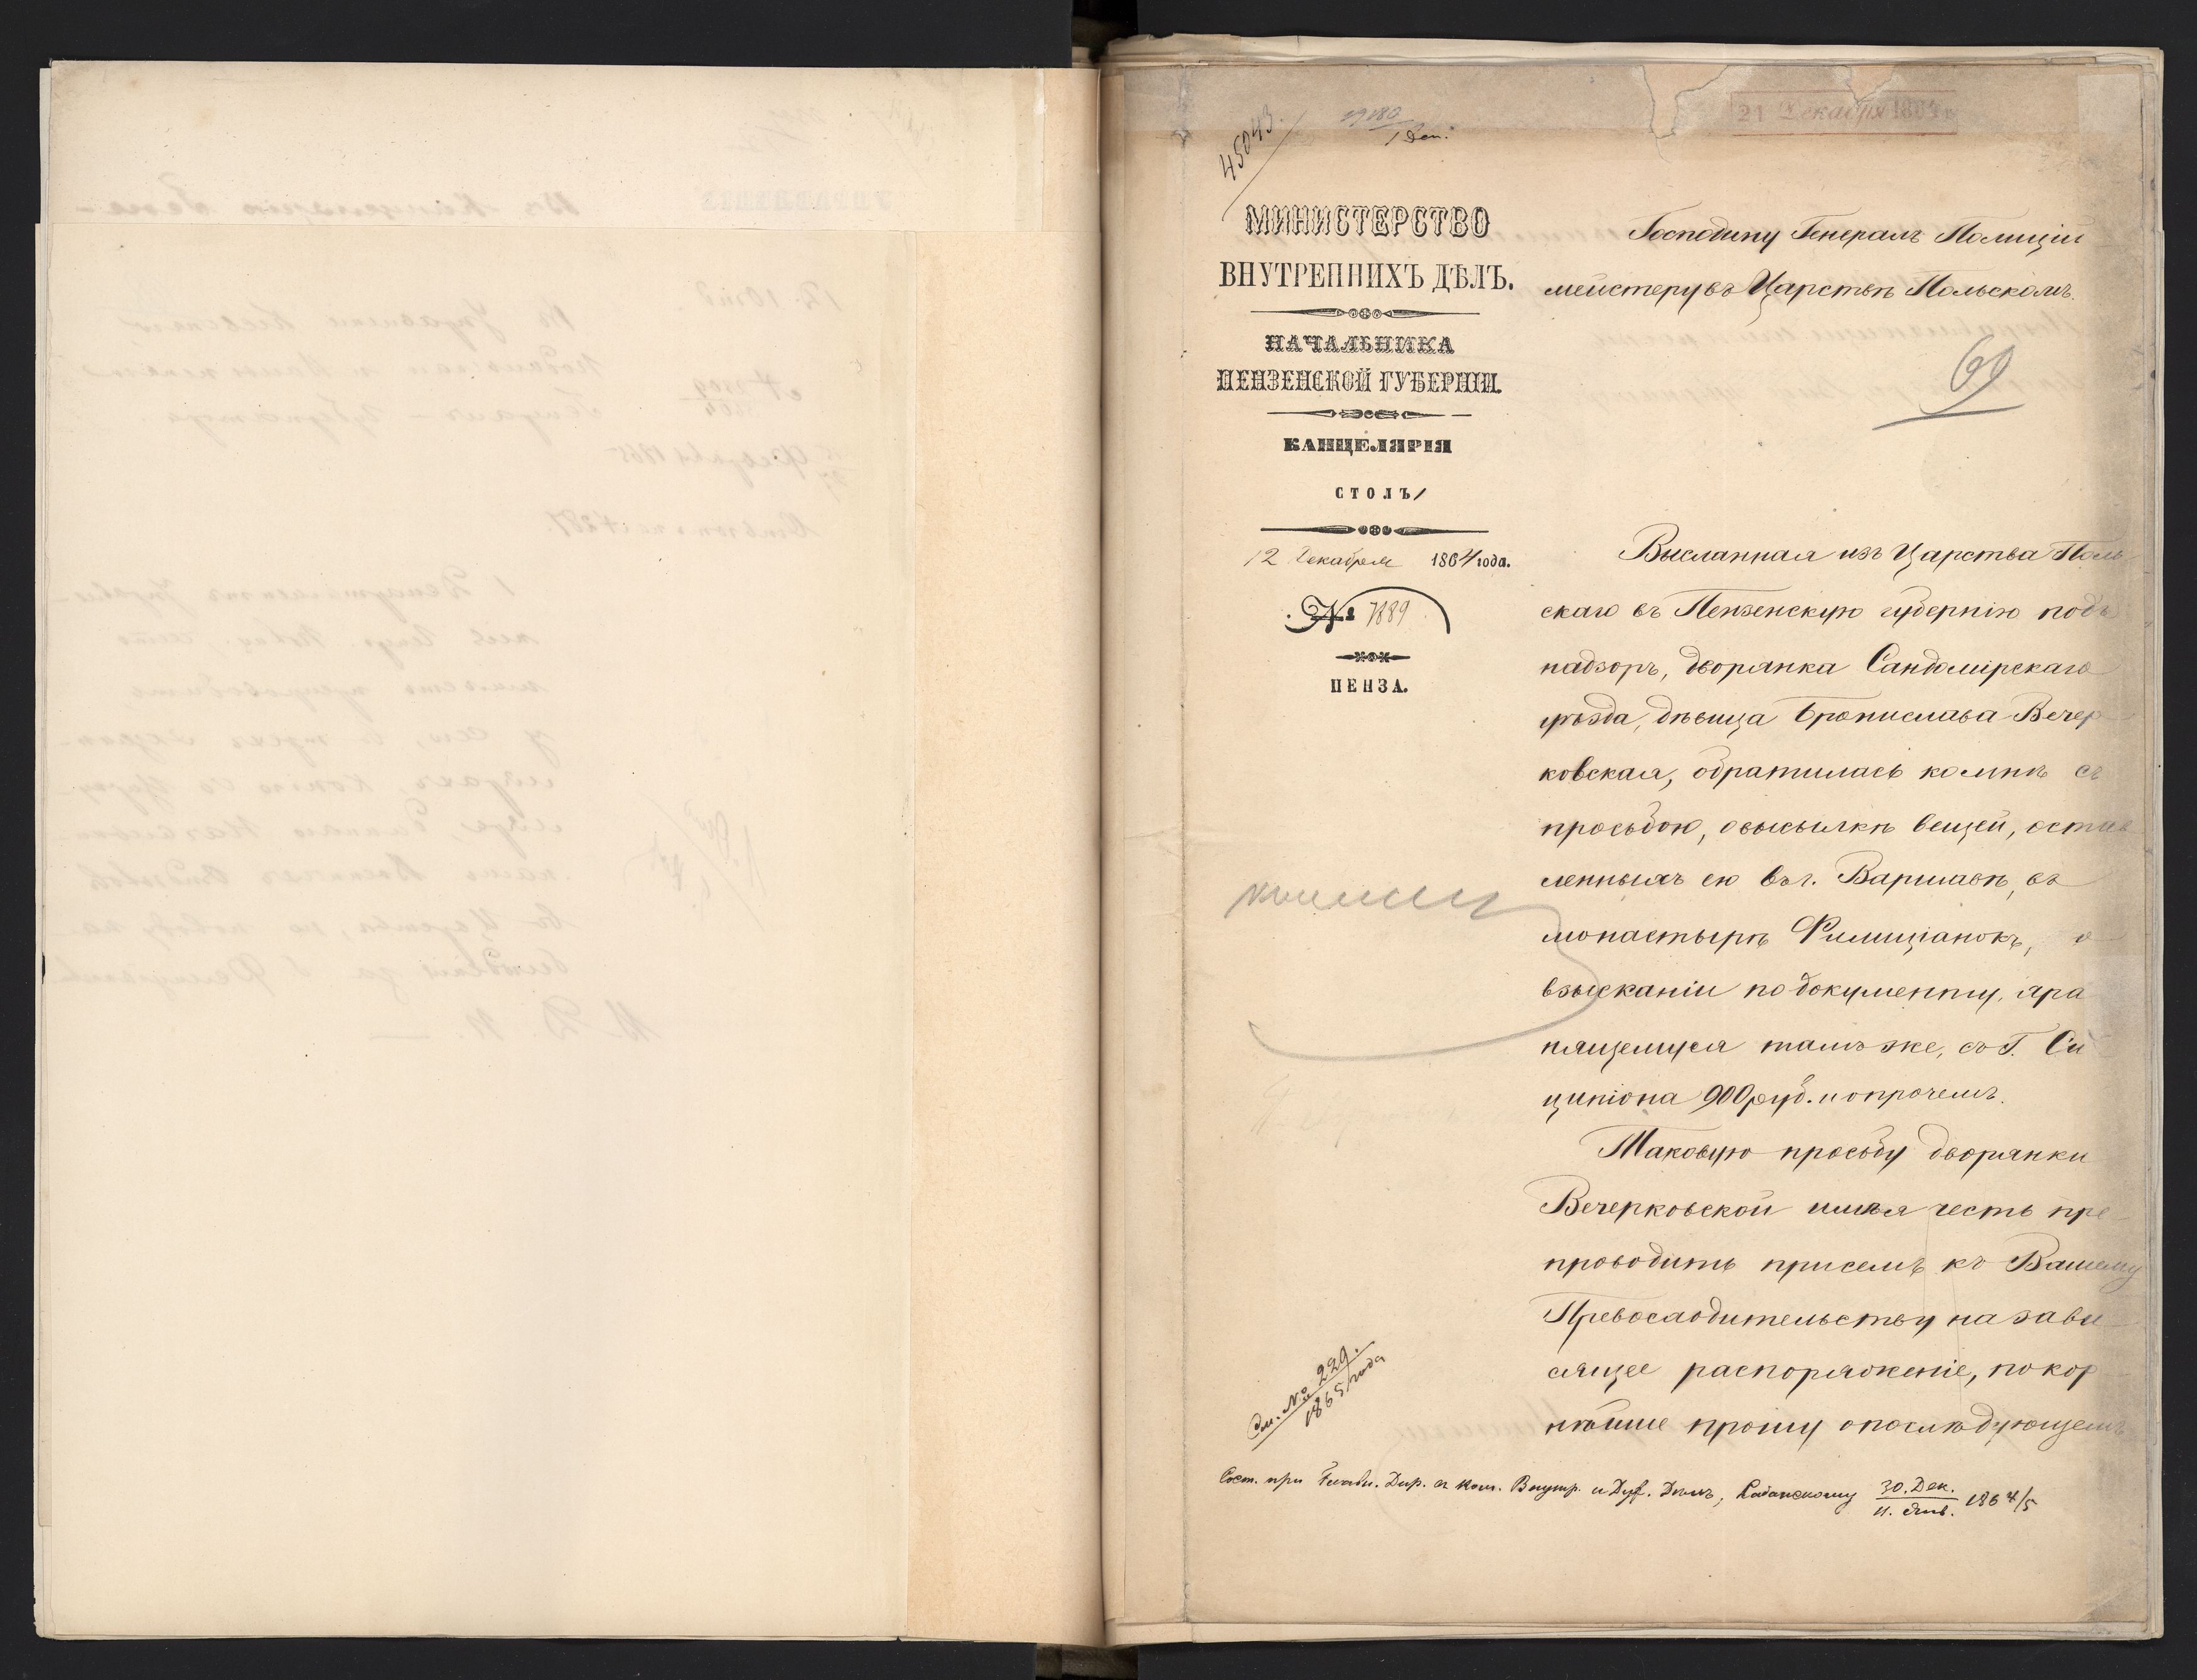 45043
19180
1 Деп.
21 Декабря 1864 г.
МИНИСТЕРСТВО
ВНУТРЕННИХЪ ДѢЛЪ.
НАЧАЛЬНИКА
ПЕНЗЕНСКОЙ ГУБЕРНІИ.
КАНЦЕЛЯРІЯ
СТОЛЪ 1
12 Декабря 1864 года.
№ 7889
ПЕНЗА.
Господину Генералъ Полиціи
мейстеру въ Царствѣ Польскомъ.
69
Высланная изъ Царства Поль
скаго въ Пензенскую губернію подъ
надзоръ, дворянка Сандомірскаго
уѣзда, дѣвица Брониславa Вечер
ковская, обратилась ко мнѣ съ
просьбою, о высылкѣ вещей, остав
ленныхъ ею въ г. Варшавѣ, въ
монастырѣ Филиціанокъ, о
взысканіи по документу, хра
нящемуся тамъ же, съ Г. Си
ципіона 900 руб. и о прочемъ.
Таковую просьбу дворянки
Вечерковской имѣя честь пре
проводить при семъ къ Вашему
Превосходительству на зави
сящее распоряженіе, покор
нѣйше прошу о послѣдующемъ
См. № 229.
1865 года
Сост. при Главн. Дир. в Ком. Внутр. и Дух. Дѣлъ, 30. Дек.
11. Янв. 1864/5